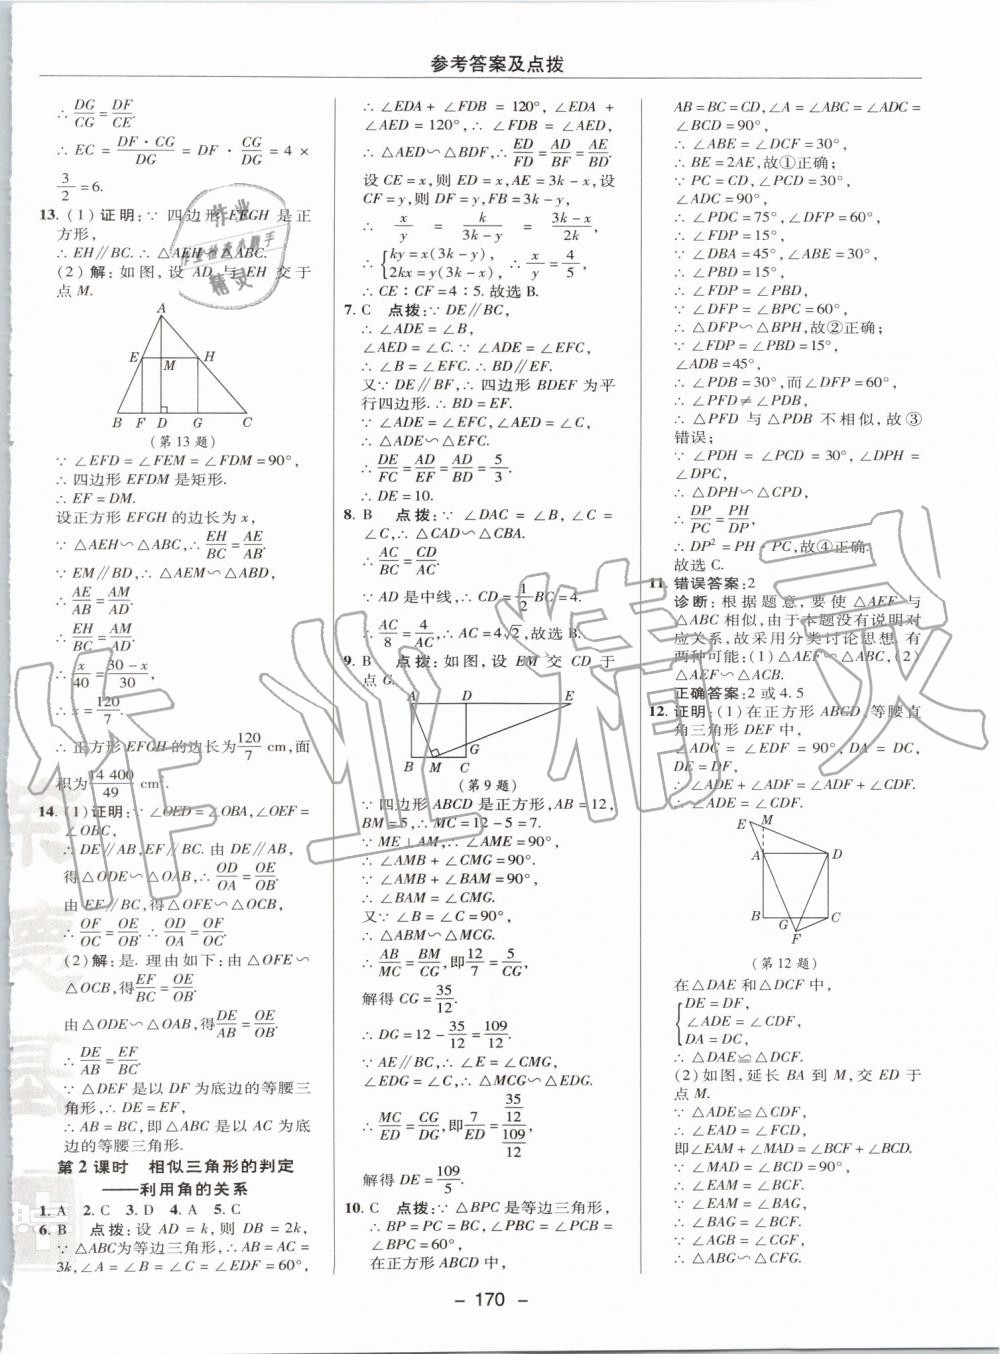 参考答案及点拨
∴ DG/CG = DF/CE.
∴ EC = DF·CG/DG = DF · CG/DG = 4 ×
3/2 = 6.
13. (1) 证明:∵ 四边形 EFGH 是正
方形,
∴ EH∥BC. ∴ △AEH∽△ABC.
(2) 解:如图,设 AD 与 EH 交于
点 M.
A
E M H
B F D G C
(第 13 题)
∵ ∠EFD = ∠FEM = ∠FDM = 90°,
∴ 四边形 EFDM 是矩形.
∴ EF = DM.
设正方形 EFGH 的边长为 x,
∵ △AEH∽△ABC, ∴ EH/BC = AE/AB.
∵ EM∥BD, ∴ △AEM∽△ABD,
∴ AE/AB = AM/AD.
∴ EH/BC = AM/AD.
∴ x/40 = (30 - x)/30,
∴ x = 120/7.
∴ 正方形 EFGH 的边长为 120/7 cm,面
积为 14 400/49 cm².
14. (1) 证明:∵ ∠OED = ∠OBA, ∠OEF =
∠OBC,
∴ DE∥AB, EF∥BC. 由 DE∥AB,
得△ODE∽△OAB, ∴ OD/OA = OE/OB.
由 EF∥BC,得△OFE∽△OCB,
∴ OF/OC = OE/OB. ∴ OD/OA = OF/OC.
(2) 解:是. 理由如下:由 △OFE∽
△OCB,得 EF/BC = OE/OB.
由△ODE∽△OAB,得 DE/AB = OE/OB.
∴ DE/AB = EF/BC.
∵ △DEF 是以 DF 为底边的等腰三
角形, ∴ DE = EF,
∴ AB = BC,即△ABC 是以 AC 为底
边的等腰三角形.
第 2 课时 相似三角形的判定
——利用角的关系
1. A 2. C 3. D 4. A 5. C
6. B 点拨:设 AD = k,则 DB = 2k,
∵ △ABC 为等边三角形, ∴ AB = AC =
3k, ∠A = ∠B = ∠C = ∠EDF = 60°,
∴ ∠EDA + ∠FDB = 120°, ∠EDA +
∠AED = 120°, ∴ ∠FDB = ∠AED,
∴ △AED∽△BDF, ∴ ED/FD = AD/BF = AE/BD.
设 CE = x,则 ED = x, AE = 3k - x,设
CF = y,则 DF = y, FB = 3k - y,
∴ x/y = k/(3k - y) = (3k - x)/2k,
∴ {ky = x(3k - y), 2kx = y(3k - x), ∴ x/y = 4/5,
∴ CE∶CF = 4∶5. 故选 B.
7. C 点拨:∵ DE∥BC,
∴ ∠ADE = ∠B,
∠AED = ∠C. ∵ ∠ADE = ∠EFC,
∴ ∠B = ∠EFC. ∴ BD∥EF.
又∵ DE∥BF, ∴ 四边形 BDEF 为平
行四边形. ∴ BD = EF.
∵ ∠ADE = ∠EFC, ∠AED = ∠C,
∴ △ADE∽△EFC.
∴ DE/FC = AD/EF = AD/BD = 5/3.
∴ DE = 10.
8. B 点拨:∵ ∠DAC = ∠B, ∠C =
∠C, ∴ △CAD∽△CBA.
∴ AC/BC = CD/AC.
∵ AD 是中线, ∴ CD = 1/2 BC = 4.
∴ AC/8 = 4/AC, ∴ AC = 4√2,故选 B.
9. B 点拨:如图,设 EM 交 CD 于
点 G.
A D E
G
B M C
(第 9 题)
∵ 四边形 ABCD 是正方形, AB = 12,
BM = 5, ∴ MC = 12 - 5 = 7.
∵ ME⊥AM, ∴ ∠AME = 90°.
∴ ∠AMB + ∠CMG = 90°.
∵ ∠AMB + ∠BAM = 90°,
∴ ∠BAM = ∠CMG.
又∵ ∠B = ∠C = 90°,
∴ △ABM∽△MCG.
∴ AB/MC = BM/CG,即 12/7 = 5/CG,
解得 CG = 35/12.
∴ DG = 12 - 35/12 = 109/12.
∵ AE∥BC, ∴ ∠E = ∠CMG,
∠EDG = ∠C, ∴ △MCG∽△EDG.
∴ MC/ED = CG/DG,即 7/ED = (35/12)/(109/12),
解得 DE = 109/5.
10. C 点拨:∵ △BPC 是等边三角形,
∴ BP = PC = BC, ∠PBC = ∠PCB =
∠BPC = 60°,
在正方形 ABCD 中,
AB = BC = CD, ∠A = ∠ABC = ∠ADC =
∠BCD = 90°,
∴ ∠ABE = ∠DCF = 30°,
∴ BE = 2AE,故①正确;
∵ PC = CD, ∠PCD = 30°,
∠ADC = 90°,
∴ ∠PDC = 75°, ∠DFP = 60°,
∴ ∠FDP = 15°,
∵ ∠DBA = 45°, ∠ABE = 30°,
∴ ∠PBD = 15°,
∴ ∠FDP = ∠PBD,
∵ ∠DFP = ∠BPC = 60°,
∴ △DFP∽△BPH,故②正确;
∵ ∠FDP = ∠PBD = 15°,
∠ADB = 45°,
∴ ∠PDB = 30°,而∠DFP = 60°,
∴ ∠PFD ≠ ∠PDB,
∴ △PFD 与 △PDB 不相似,故③
错误;
∵ ∠PDH = ∠PCD = 30°, ∠DPH =
∠DPC,
∴ △DPH∽△CPD,
∴ DP/PC = PH/DP,
∴ DP² = PH·PC,故④正确.
故选 C.
11. 错误答案:2
诊断:根据题意,要使 △AEF 与
△ABC 相似,由于本题没有说明对
应关系,故采用分类讨论思想. 有
两种可能:(1) △AEF∽△ABC, (2)
△AEF∽△ACB.
正确答案:2 或 4.5
12. 证明:(1) 在正方形 ABCD,等腰直
角三角形 DEF 中,
∠ADC = ∠EDF = 90°, DA = DC,
DE = DF,
∴ ∠ADE + ∠ADF = ∠ADF + ∠CDF.
∴ ∠ADE = ∠CDF.
E M
A D
B G C
F
(第 12 题)
在 △DAE 和△DCF 中,
{DE = DF,
∠ADE = ∠CDF,
DA = DC,
∴ △DAE≌△DCF.
(2) 如图,延长 BA 到 M,交 ED 于
点 M.
∵ △ADE≌△CDF,
∴ ∠EAD = ∠FCD,
即∠EAM + ∠MAD = ∠BCF + ∠BCD.
∵ ∠MAD = ∠BCD = 90°,
∴ ∠EAM = ∠BCF.
∵ ∠EAM = ∠BAG,
∴ ∠BAG = ∠BCF.
∵ ∠AGB = ∠CGF,
∴ △ABG∽△CFG.
- 170 -
作业
作业检查小助手
精灵
作业精灵